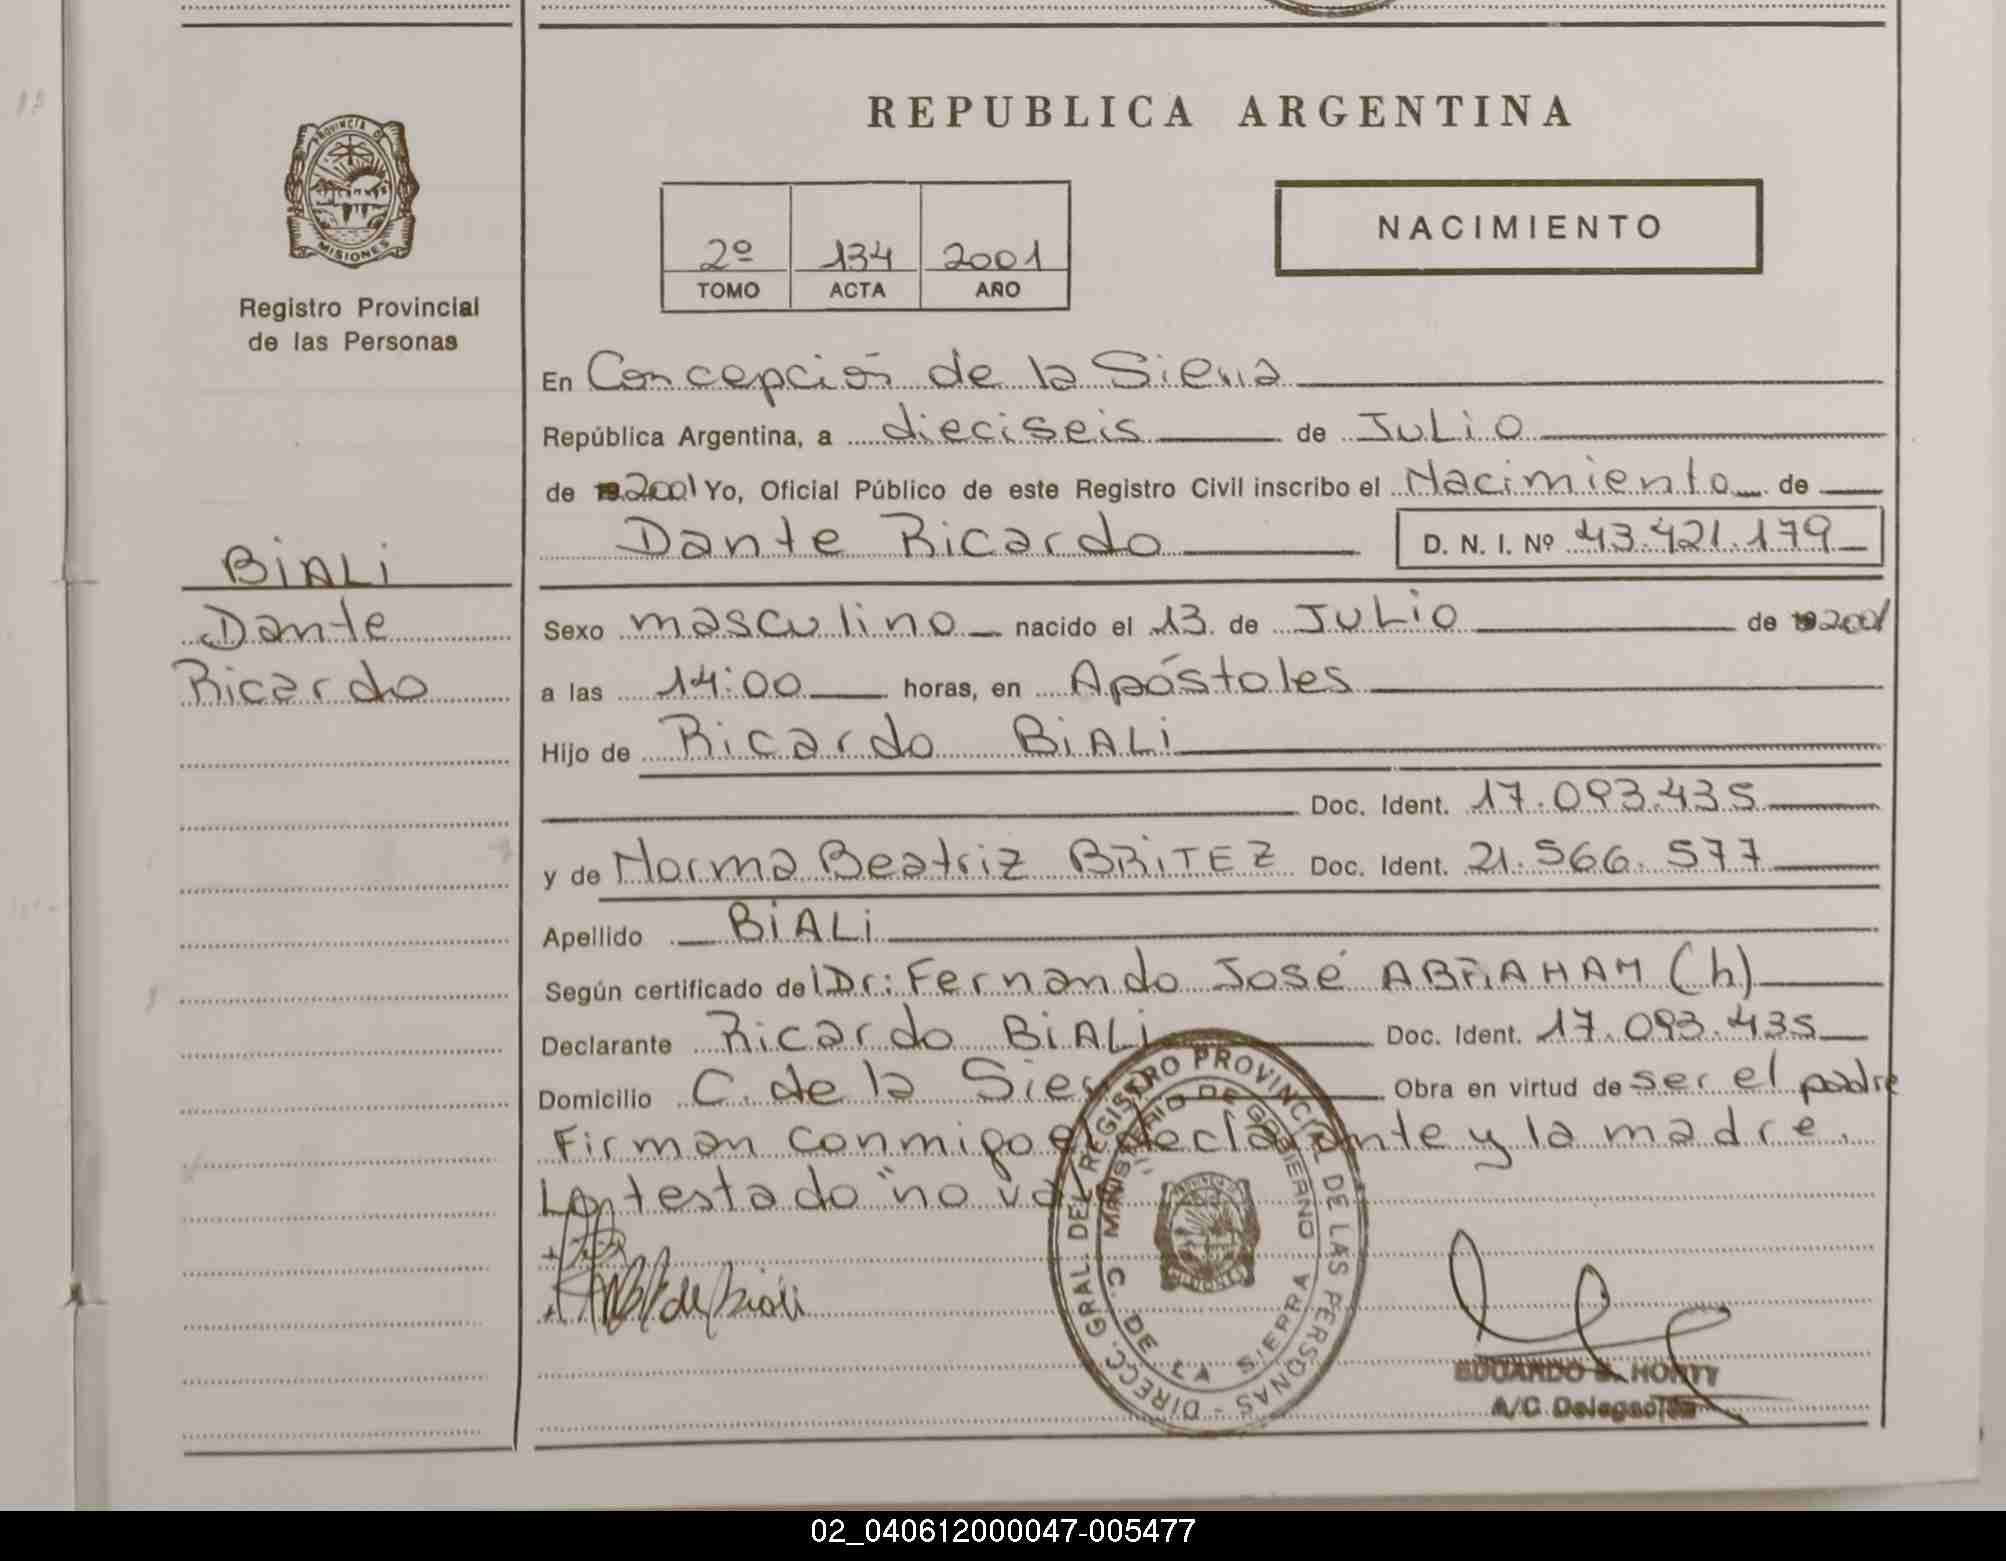 REPUBLICA ARGENTINA
PROVINCIA DE
MISIONES
Registro Provincial
de las Personas
NACIMIENTO
2º 134 2001
TOMO ACTA AÑO
En Concepción de la Sierra
República Argentina, a dieciseis de Julio
de 2001 Yo, Oficial Público de este Registro Civil inscribo el Nacimiento de
Dante Ricardo D. N. I. Nº 43.421.179
BiALi
Dante
Ricardo
Sexo masculino nacido el 13 de Julio de 2001
a las 14:00 horas, en Apóstoles
Hijo de Ricardo BiALi
Doc. Ident. 17.093.435
y de Norma Beatriz BRiTEZ Doc. Ident. 21.566.577
Apellido BiALi
Según certificado del Dr: Fernando José ABRAHAM (h)
Declarante Ricardo BiALi Doc. Ident. 17.093.435
Domicilio C. de la Sierra Obra en virtud de ser el padre
Firman conmigo el declarante y la madre.
Lo testado "no vale
de Biali
DIRECC. GRAL DEL REGISTRO PROVINCIAL DE LAS PERSONAS -
MINISTERIO DE GOBIERNO
C. DE LA SIERRA
EDUARDO
A/C Delegación
02_040612000047-005477